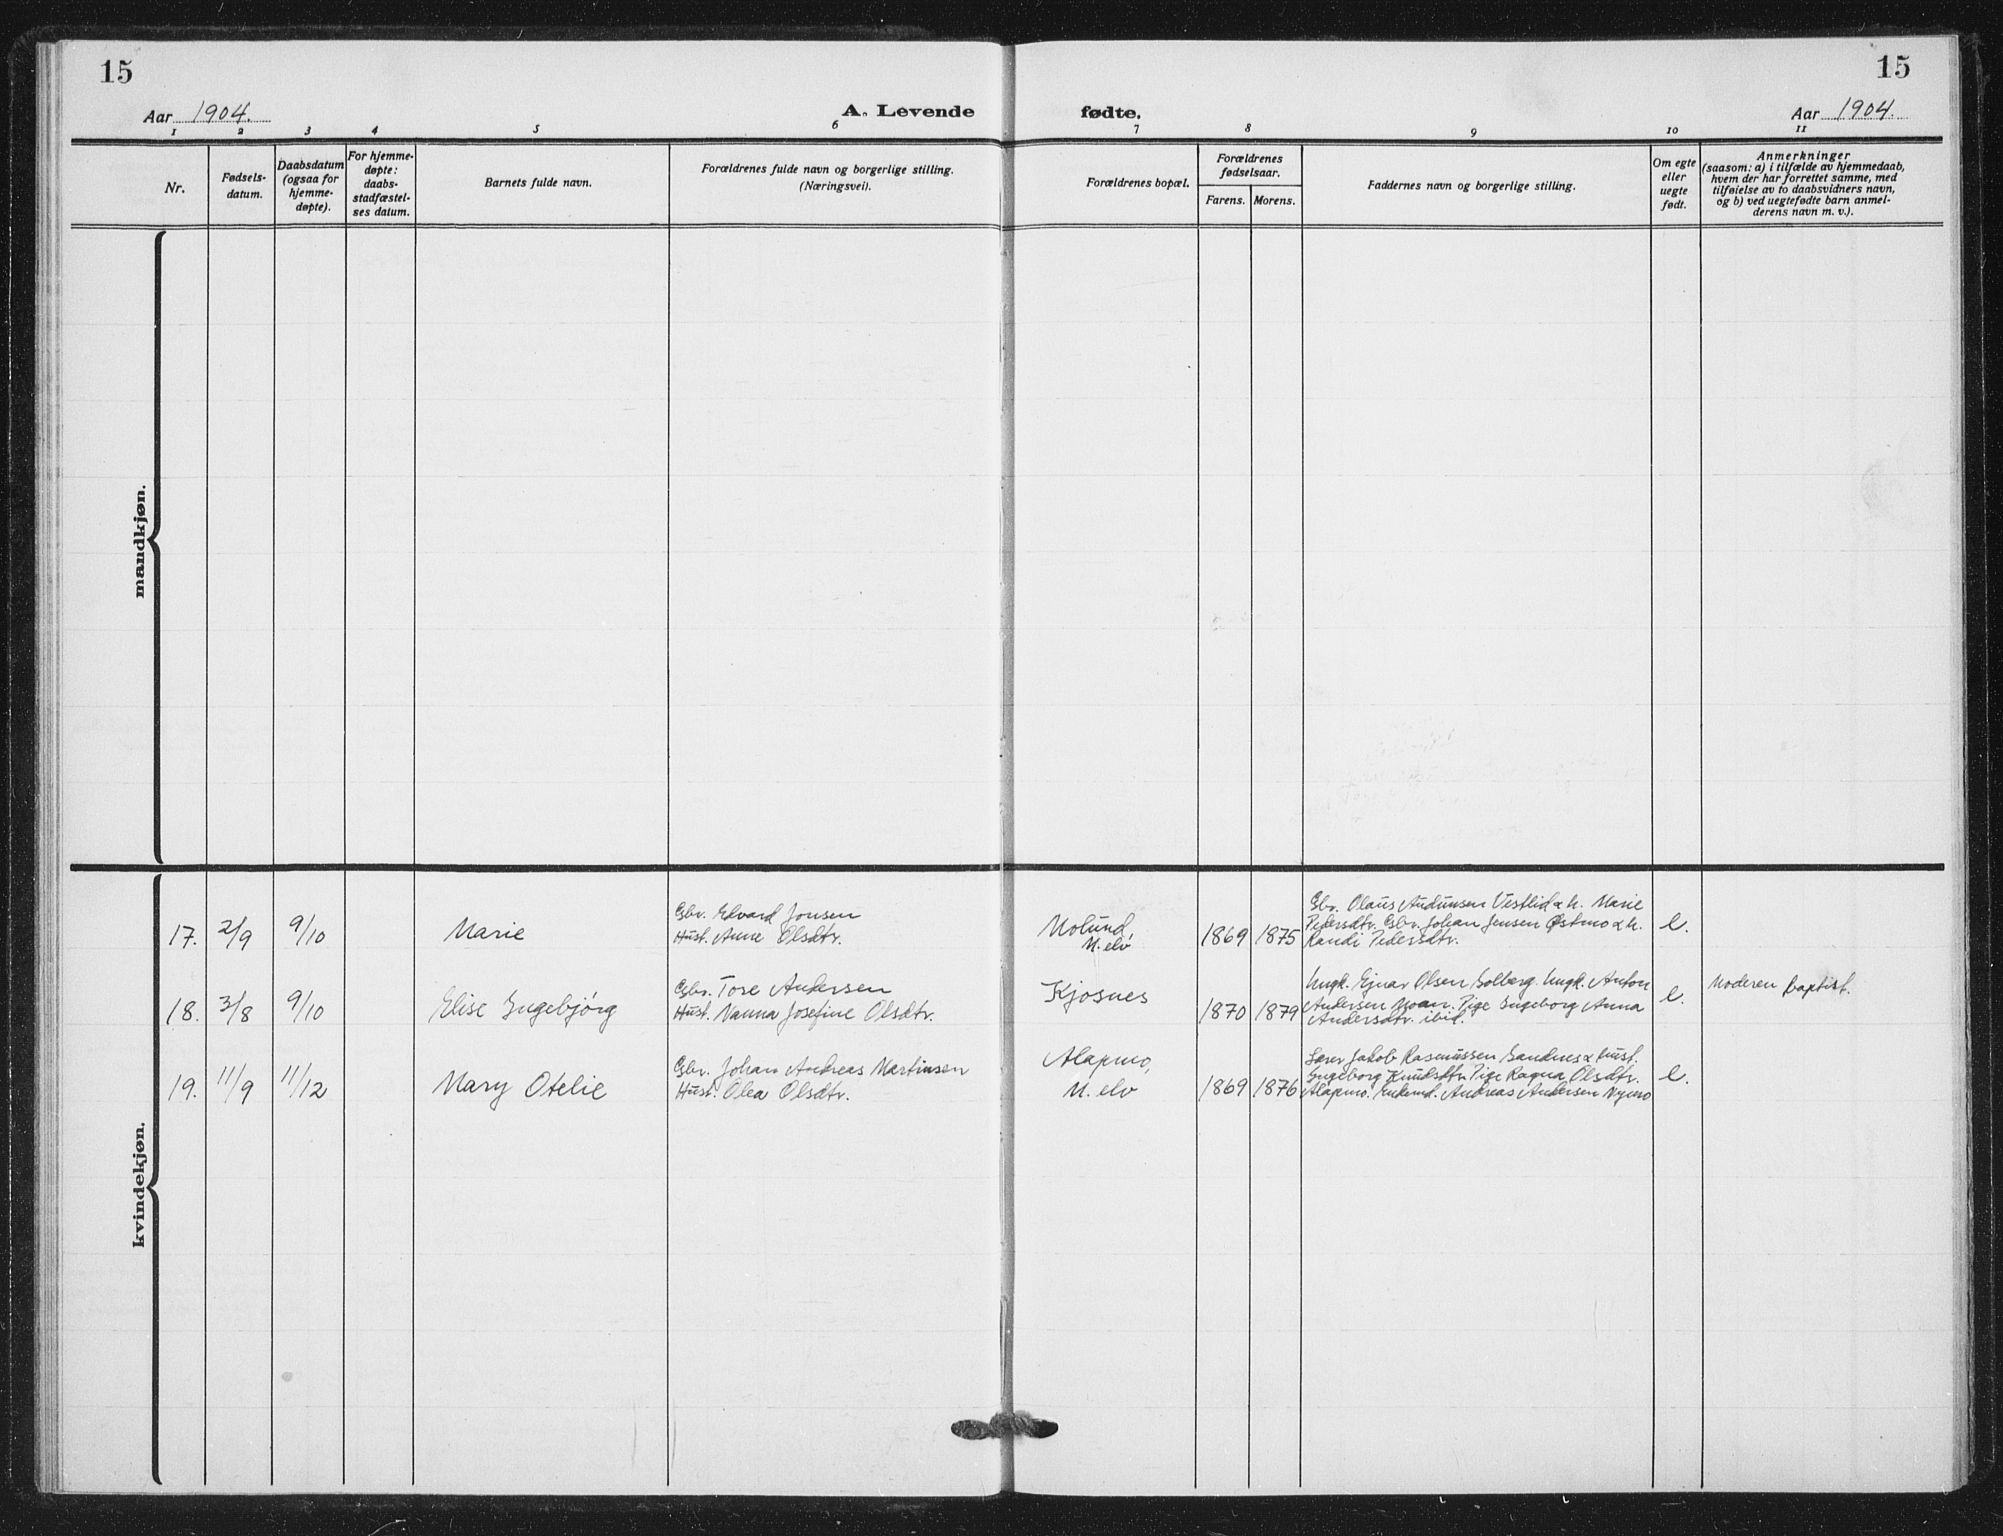 15
15
Aar 1904.
A. Levende
fødte.
Aar 1904.
1 2 3 4 5 6 7 8 9 10 11
Nr.
Fødsels-
datum.
Daabsdatum
(ogsaa for
hjemme-
døpte).
For hjemme-
døpte:
daabs-
stadfæstel-
ses datum.
Barnets fulde navn.
Forældrenes fulde navn og borgerlige stilling.
(Næringsvei).
Forældrenes bopæl.
Forældrenes
fødselsaar.
Farens. Morens.
Faddernes navn og borgerlige stilling.
Om egte
eller
uegte
født.
Anmerkninger
(saasom: a) i tilfælde av hjemmedaab,
hvem der har forrettet samme, med
tilføielse av to daabsvidners navn,
og b) ved uegtefødte barn anmel-
derens navn m. v.).
mandkjøn.
kvindekjøn.
17. 2/9 9/10 Marie
Gbr. Edvard Jonsen
Hust. Anne Olsdtr.
Molund,
M. elv
1869 1875
Gbr. Olaus Audunsen Vestlid & h. Marie
Pedersdtr. Gbr. Johan Jensen Østmo & h.
Randi Pedersdtr.
e.
18. 3/8 9/10 Elise Ingebjörg
Gbr. Tore Andersen
Hust. Nanna Josefine Olsdtr.
Kjosnes
1870 1879
Ungk. Ejnar Olsen Solberg. Ungk. Anton
Andersen Moan. Pige Ingeborg Anna
Andersdtr. ibid.
e.
Moderen baptist.
19. 11/9 11/12 Mary Otelie
Gbr. Johan Andreas Martinsen
Hust. Olea Olsdtr.
Alapmo,
M. elv
1869 1876
Lærer Jakob Rasmussen Sandnes & hust.
Ingeborg Knudsdtr. Pige Ragna Olsdtr.
Alapmo. Andreas Andersen Nymo
e.